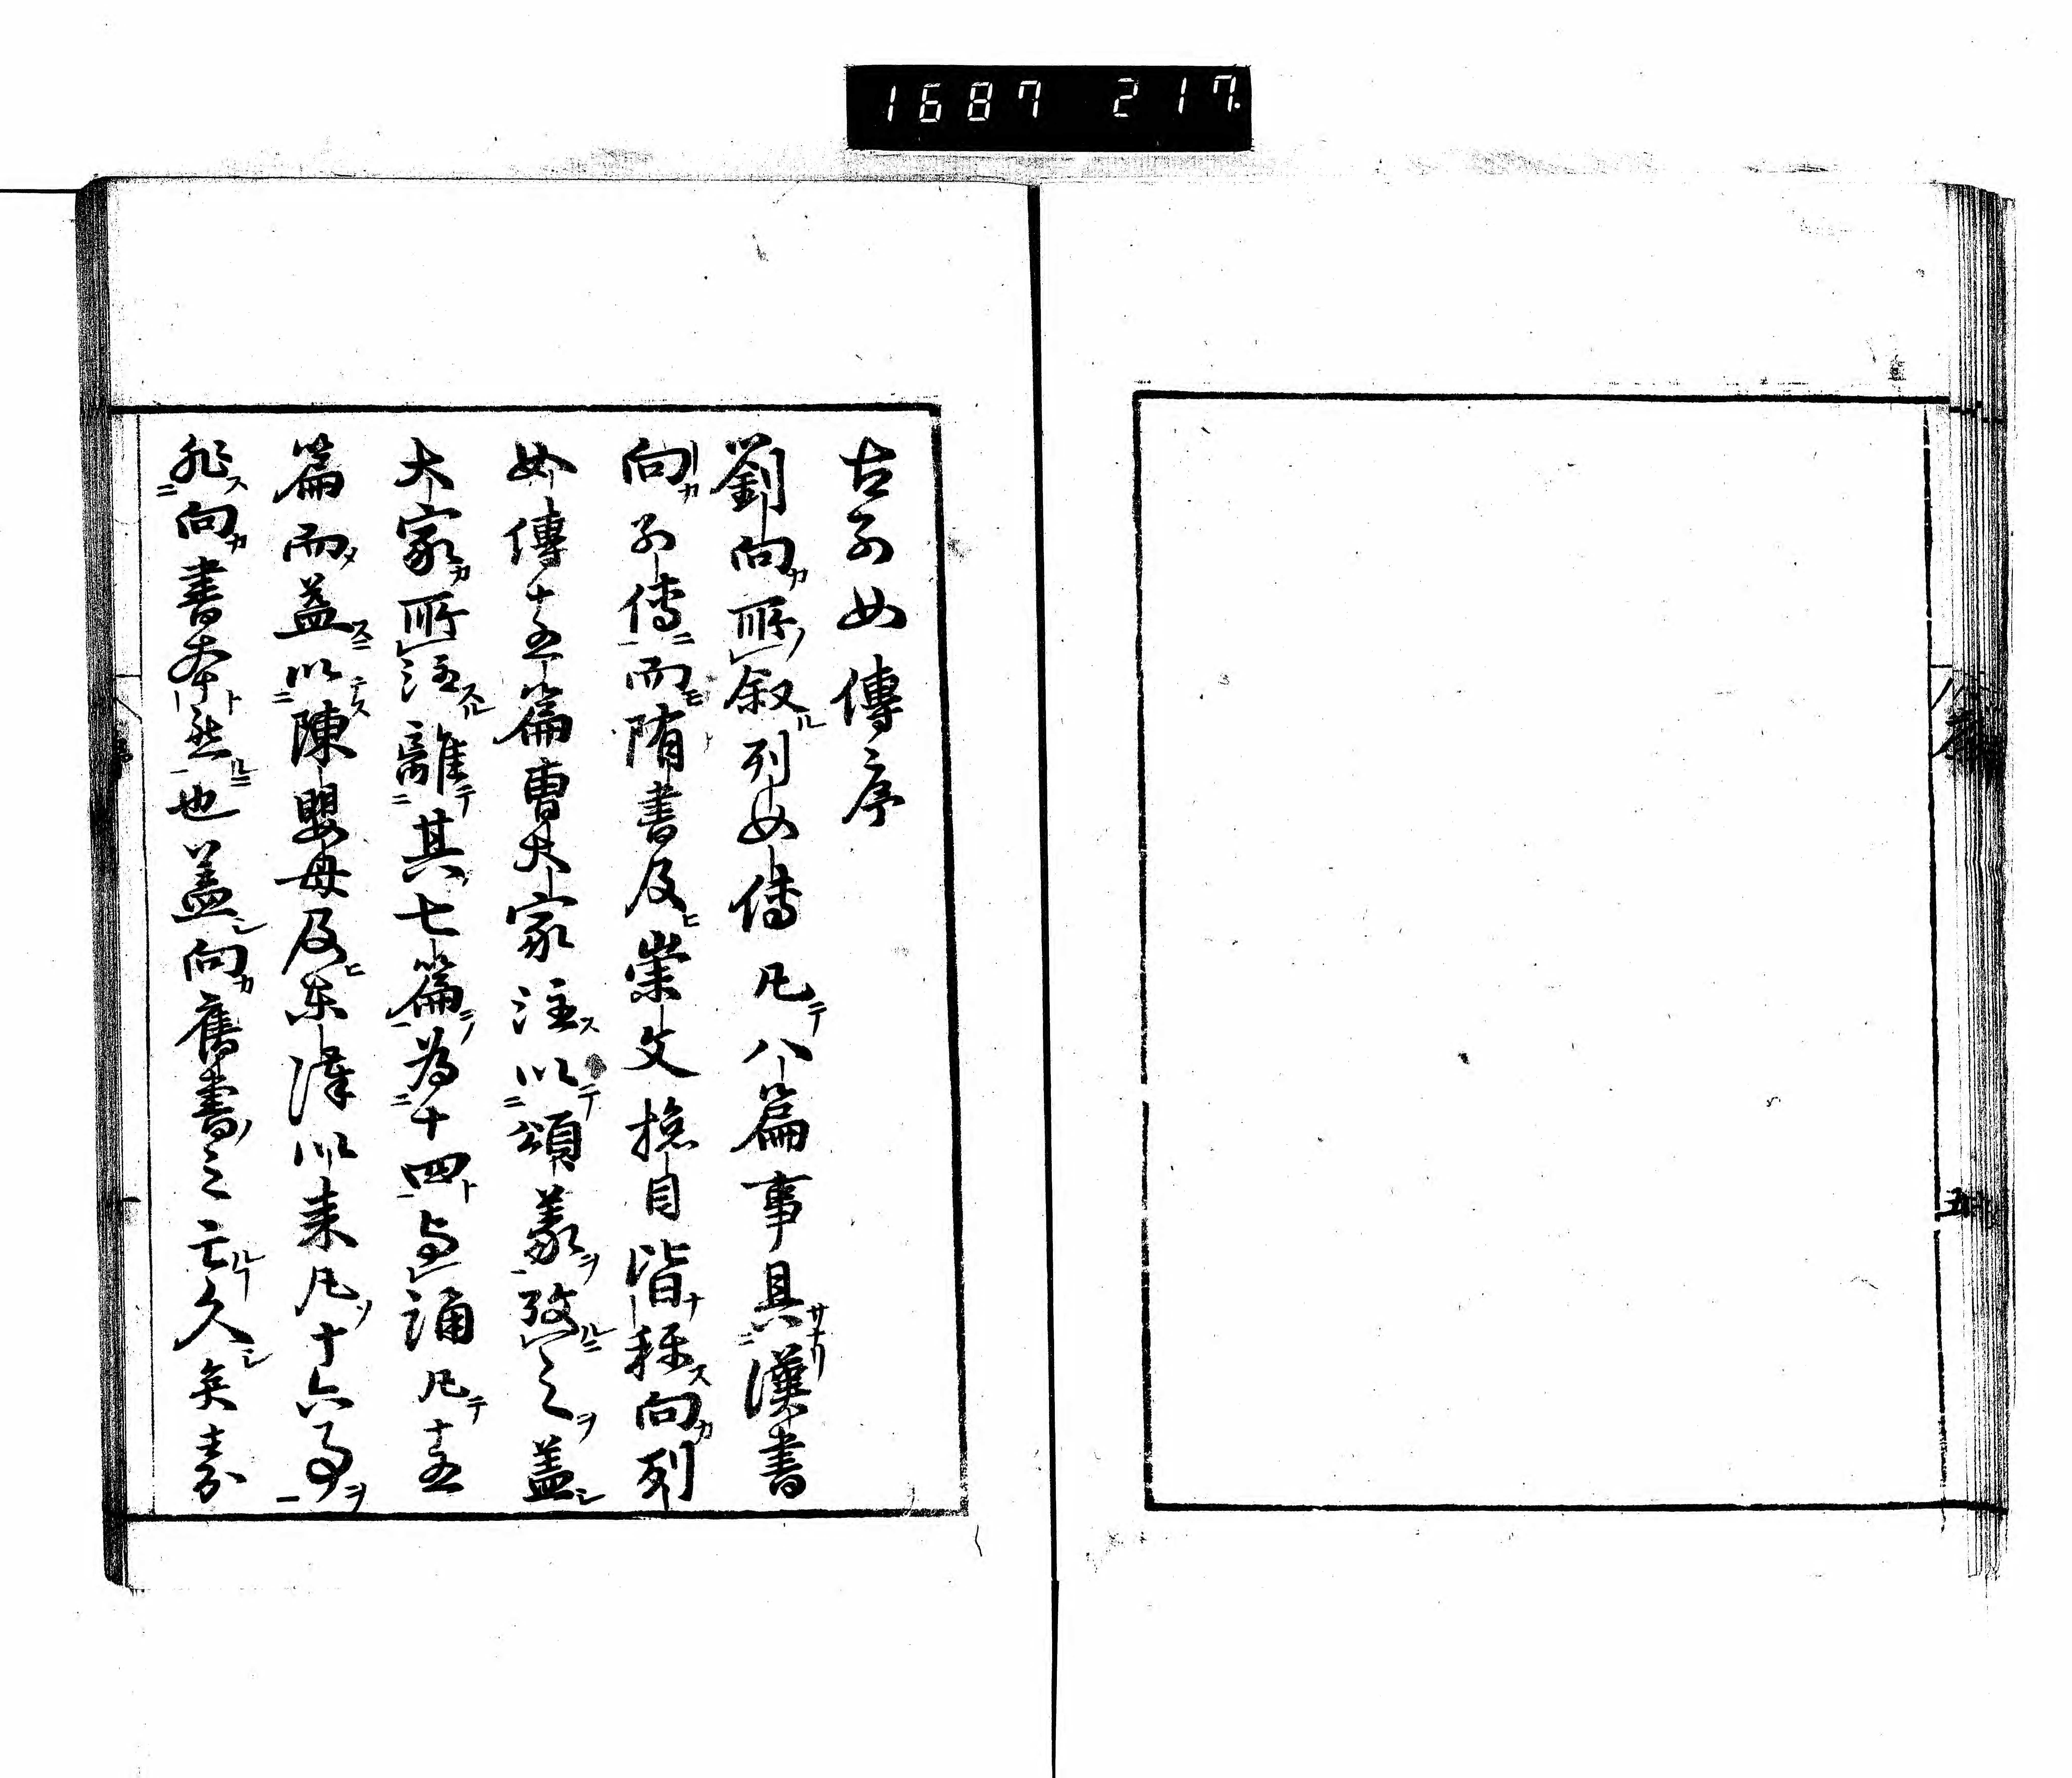 1687 217.
古列女傳序
劉向所叙列女傳凡八篇事具漢書
向列傳而隋書及崇文捴目皆稱向列
女傳十五篇曹大家注以頌義攷之盖
大家所注離其七篇為十四与誦凡十五
篇而益以陳嬰母及東漢以来凡十六事
非向書本然也盖向舊書之亡久矣嘉
序
五